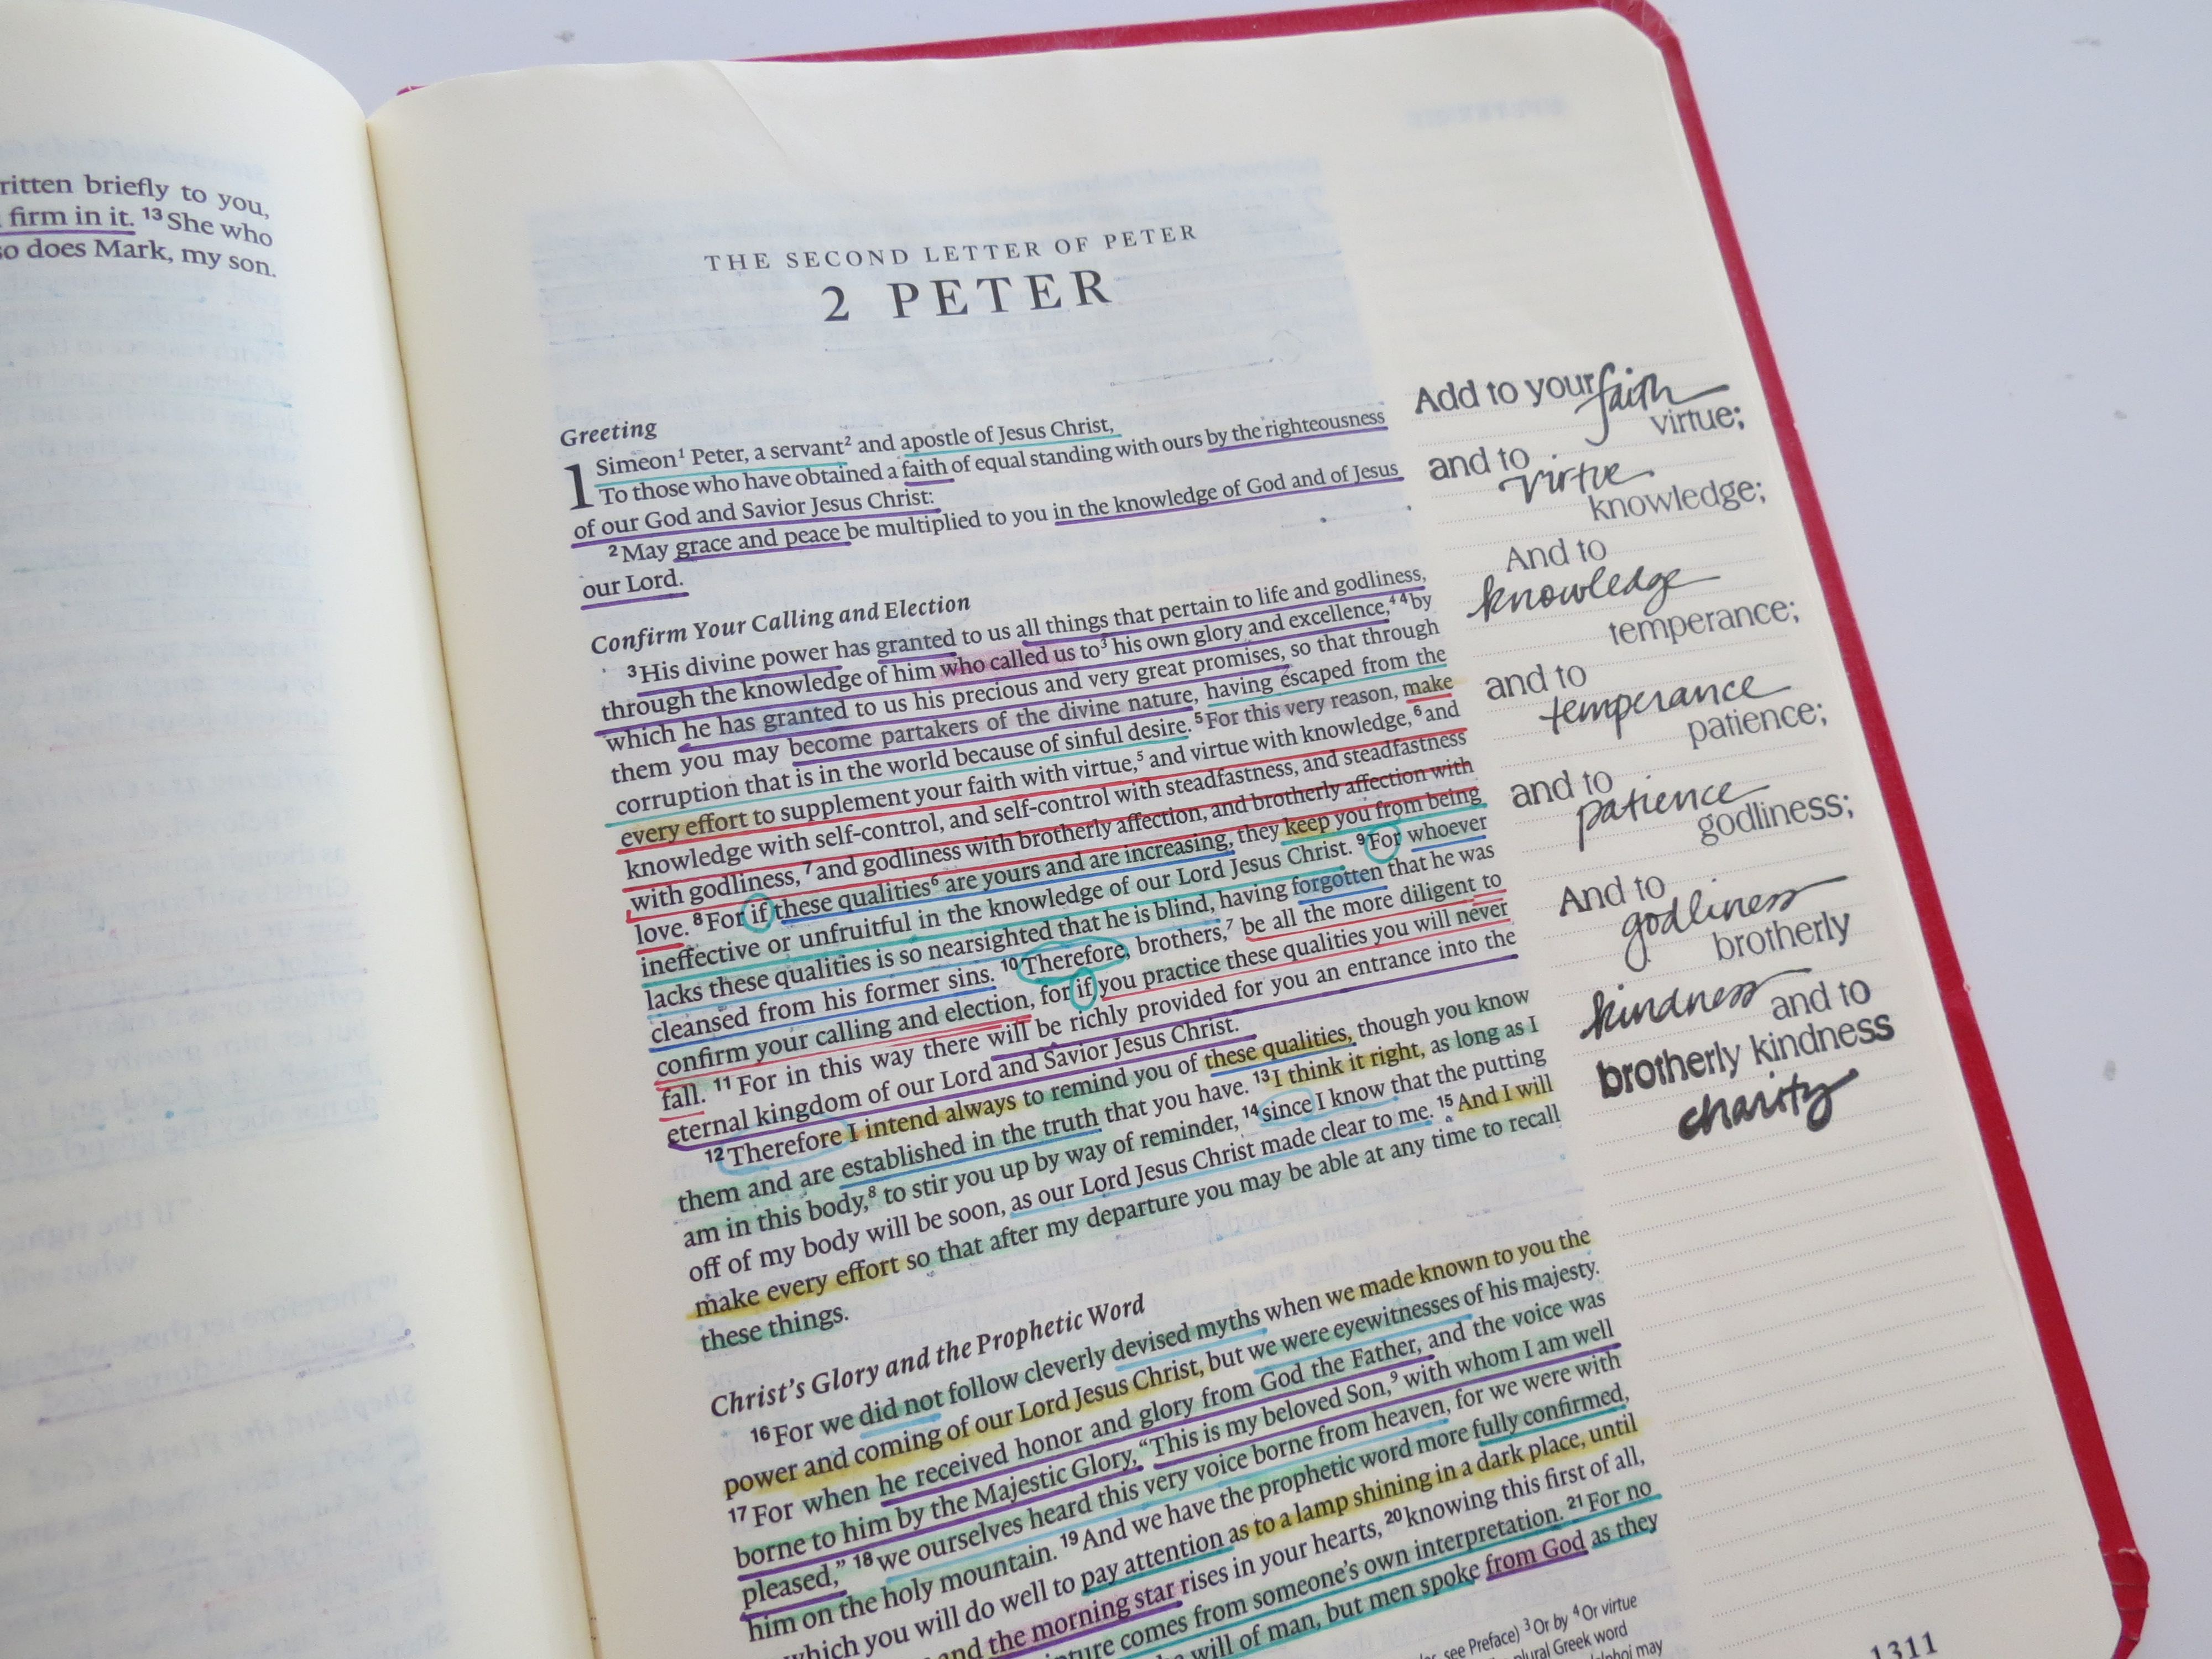 ritten briefly to you,
firm in it. 13 She who
so does Mark, my son.
THE SECOND LETTER OF PETER
2 PETER
Greeting
1 Simeon1 Peter, a servant2 and apostle of Jesus Christ,
To those who have obtained a faith of equal standing with ours by the righteousness
of our God and Savior Jesus Christ:
2 May grace and peace be multiplied to you in the knowledge of God and of Jesus
our Lord.
Confirm Your Calling and Election
3 His divine power has granted to us all things that pertain to life and godliness,
through the knowledge of him who called us to3 his own glory and excellence,4 4 by
which he has granted to us his precious and very great promises, so that through
them you may become partakers of the divine nature, having escaped from the
corruption that is in the world because of sinful desire. 5 For this very reason, make
every effort to supplement your faith with virtue,5 and virtue with knowledge, 6 and
knowledge with self-control, and self-control with steadfastness, and steadfastness
with godliness, 7 and godliness with brotherly affection, and brotherly affection with
love. 8 For if these qualities6 are yours and are increasing, they keep you from being
ineffective or unfruitful in the knowledge of our Lord Jesus Christ. 9 For whoever
lacks these qualities is so nearsighted that he is blind, having forgotten that he was
cleansed from his former sins. 10 Therefore, brothers,7 be all the more diligent to
confirm your calling and election, for if you practice these qualities you will never
fall. 11 For in this way there will be richly provided for you an entrance into the
eternal kingdom of our Lord and Savior Jesus Christ.
12 Therefore I intend always to remind you of these qualities, though you know
them and are established in the truth that you have. 13 I think it right, as long as I
am in this body,8 to stir you up by way of reminder, 14 since I know that the putting
off of my body will be soon, as our Lord Jesus Christ made clear to me. 15 And I will
make every effort so that after my departure you may be able at any time to recall
these things.
Christ's Glory and the Prophetic Word
16 For we did not follow cleverly devised myths when we made known to you the
power and coming of our Lord Jesus Christ, but we were eyewitnesses of his majesty.
17 For when he received honor and glory from God the Father, and the voice was
borne to him by the Majestic Glory, "This is my beloved Son,9 with whom I am well
pleased," 18 we ourselves heard this very voice borne from heaven, for we were with
him on the holy mountain. 19 And we have the prophetic word more fully confirmed,
which you will do well to pay attention as to a lamp shining in a dark place, until
and the morning star rises in your hearts, 20 knowing this first of all,
pture comes from someone's own interpretation. 21 For no
will of man, but men spoke from God as they
see Preface) 3 Or by 4 Or virtue
plural Greek word
may
1311
Add to your faith
virtue;
and to
virtue
knowledge;
And to
knowledge
temperance;
and to
temperance
patience;
and to
patience
godliness;
And to
godliness
brotherly
kindness and to
brotherly kindness
charity